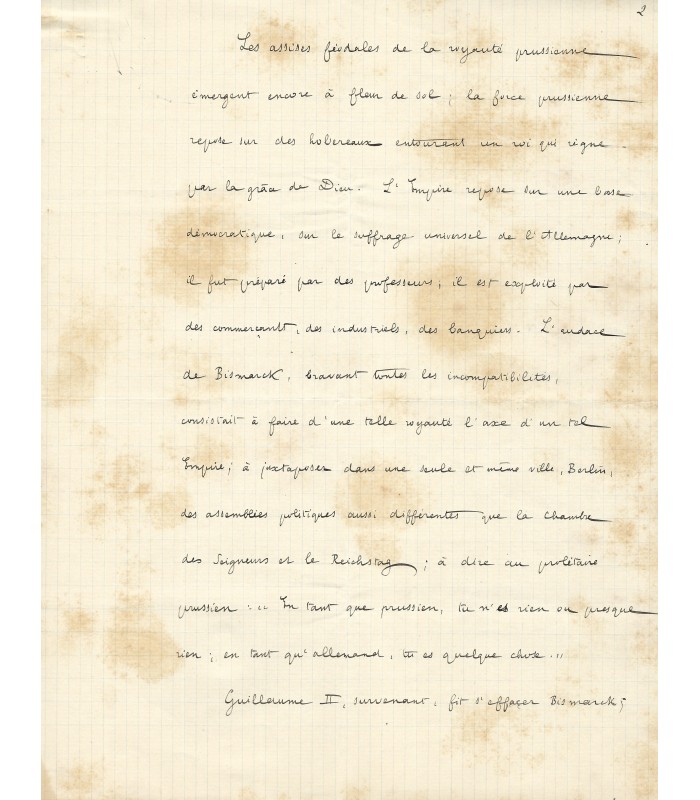 2
Les assises féodales de la royauté prussienne
émergent encore à fleur de sol ; la force prussienne
repose sur des hobereaux entourant un roi qui règne
par la grâce de Dieu. L'Empire repose sur une base
démocratique, sur le suffrage universel de l'Allemagne ;
il fut préparé par des professeurs ; il est exploité par
des commerçants, des industriels, des banquiers. L'audace
de Bismarck, bravant toutes les incompatibilités,
consistait à faire d'une telle royauté l'axe d'un tel
Empire ; à juxtaposer dans une seule et même ville, Berlin,
des assemblées politiques aussi différentes que la Chambre
des Seigneurs et le Reichstag ; à dire au prolétaire
prussien : " En tant que prussien, tu n'es rien ou presque
rien ; en tant qu'allemand, tu es quelque chose. "
Guillaume II, survenant, fit s'effacer Bismarck ;